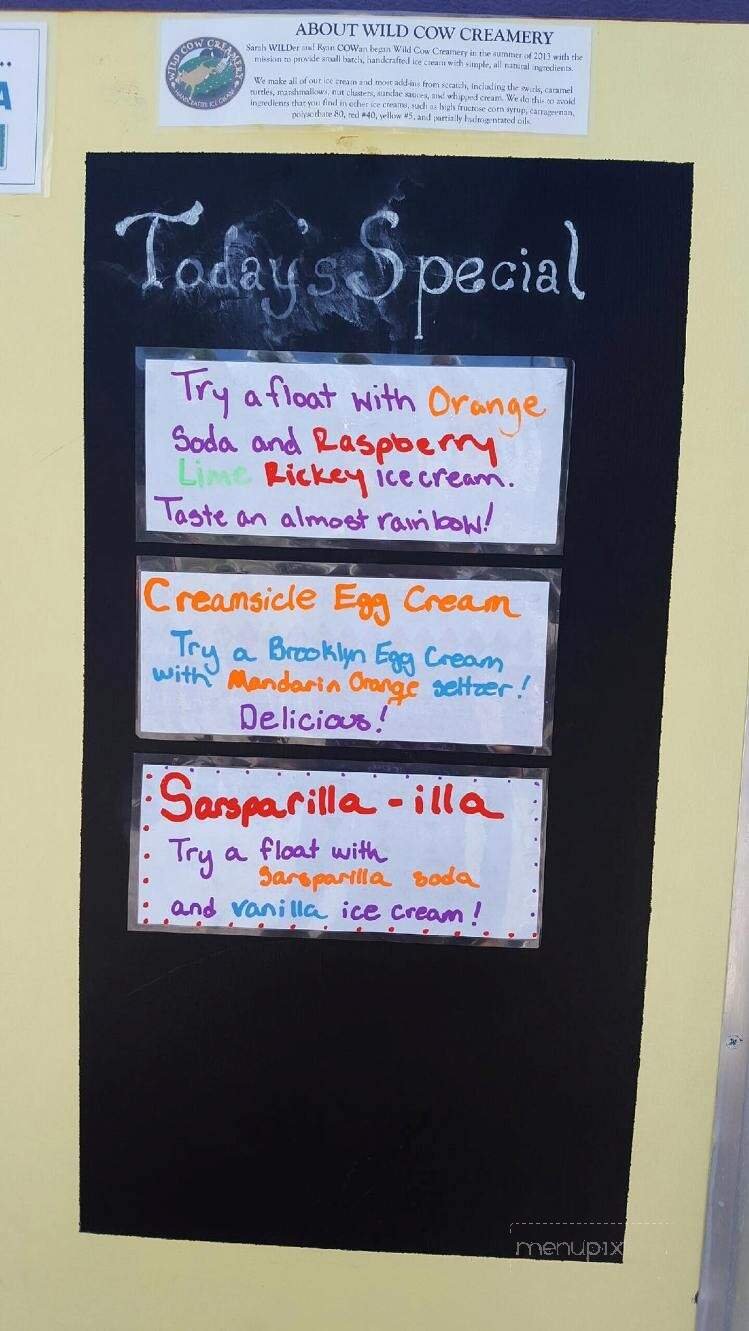 ...
A
WILD COW CREAMERY
HANDCRAFTED ICE CREAM
ABOUT WILD COW CREAMERY
Sarah WILDer and Ryan COWan began Wild Cow Creamery in the summer of 2013 with the
mission to provide small batch, handcrafted ice cream with simple, all natural ingredients.
We make all of our ice cream and most add-ins from scratch, including the swirls, caramel
turtles, marshmallows, nut clusters, sundae sauces, and whipped cream. We do this to avoid
ingredients that you find in other ice creams, such as high fructose corn syrup, carrageenan,
polysorbate 80, red #40, yellow #5, and partially hydrogenated oils.
Today's Special
Try a float with Orange
Soda and Raspberry
Lime Rickey ice cream.
Taste an almost rainbow!
Creamsicle Egg Cream
Try a Brooklyn Egg Cream
with Mandarin Orange seltzer!
Delicious!
Sarsparilla-illa
Try a float with
Sarsparilla soda
and vanilla ice cream!
menupix